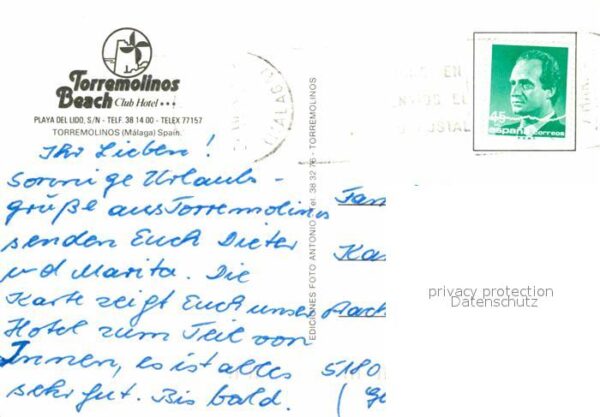 Torremolinos
Beach Club Hotel
PLAYA DEL LIDO, S/N - TELF. 38 14 00 - TELEX 77157
TORREMOLINOS (Málaga) Spain.
Ihr Lieben!
Sonnige Urlaubs-
grüße aus Torremolinos
senden Euch Dieter
und Marita. Die
Karte zeigt Euch unser
Hotel zum Teil von
Innen, es ist alles
sehr gut. Bis bald.
EDICIONES FOTO ANTONIO Tel. 38 32 76 - TORREMOLINOS
MALAGA
EN
45
España correos
Fam
Ka
Aach
5180
privacy protection
Datenschutz